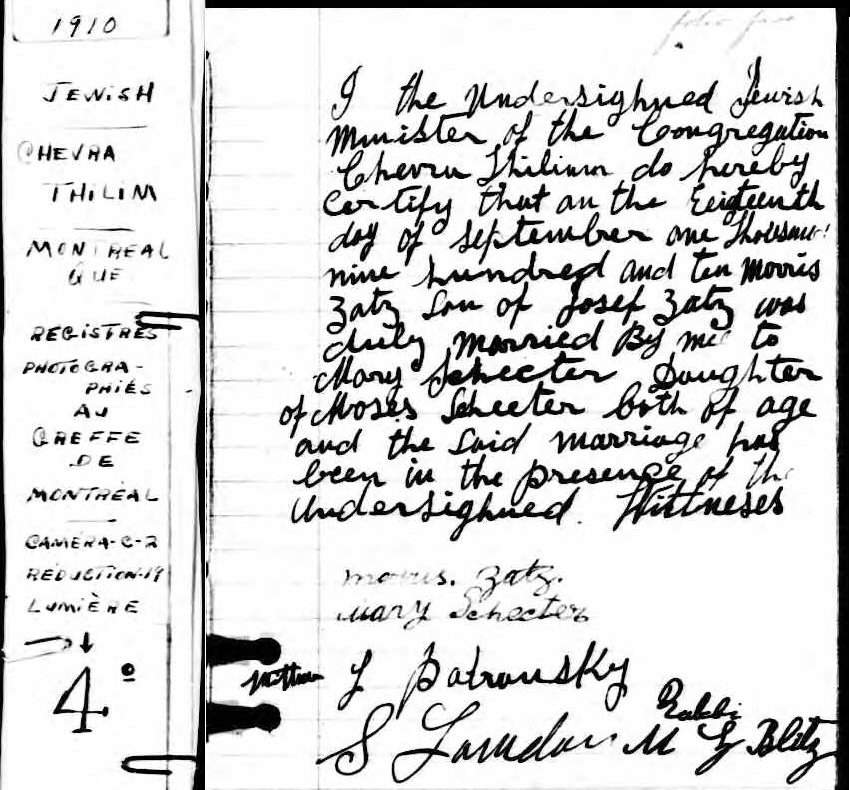 1910
JEWISH
CHEVRA
THILIM
MONTREAL
QUE
REGISTRES
PHOTOGRA-
PHIÉS
AU
GREFFE
DE
MONTRÉAL
CAMÉRA-C-2
RÉDUCTION-19
LUMIÈRE
4º
folio five
I the Undersighned Jewish
Minister of the Congregation
Chevra Thilim do hereby
certify that on the Eeigteenth
day of September one Thousand
nine hundred and ten Morris
Zatz Son of Josef Zatz was
duly Married By me to
Mary Schecter Daughter
of Moses Schecter both of age
and the Said Marriage has
been in the presence of the
Undersighned. Wittneses
Morris. Zatz.
Mary Schecter
S
Rabbi
M Blitz